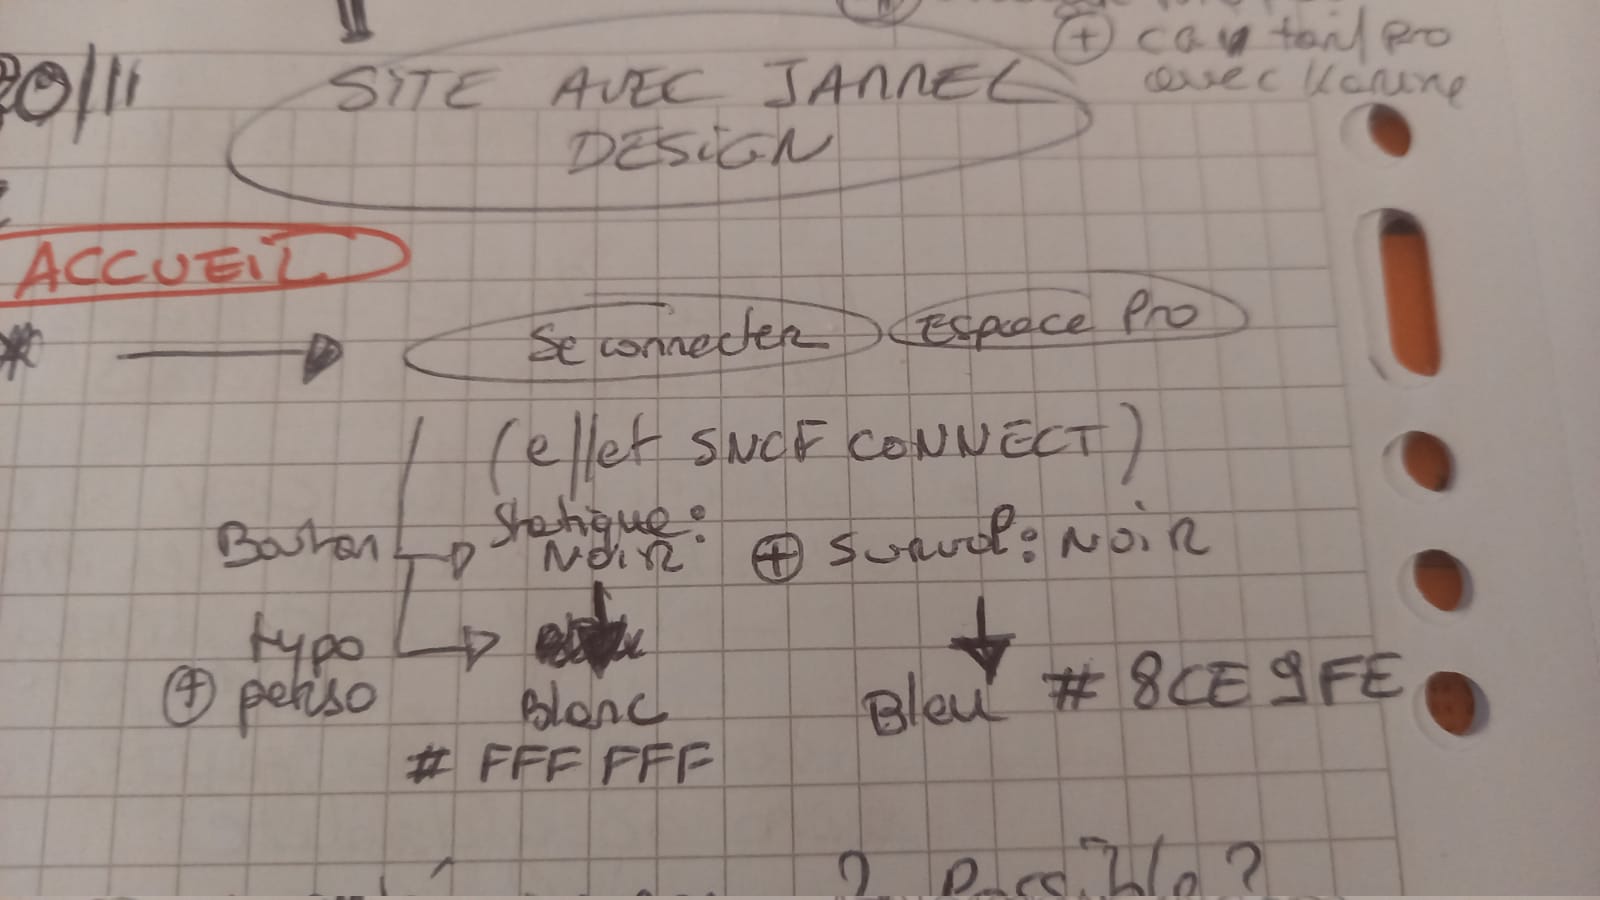 + ca
avec Karine
20/11
SITE AVEC JANNEL
DESIGN
ACCUEIL
* Se connecter Espace Pro
(effet SNCF CONNECT)
Bouton Statique: NOIR + Survol: NOIR
typo
+ perso Blanc Bleu # 8CE9FE
# FFF FFF
? Possible?